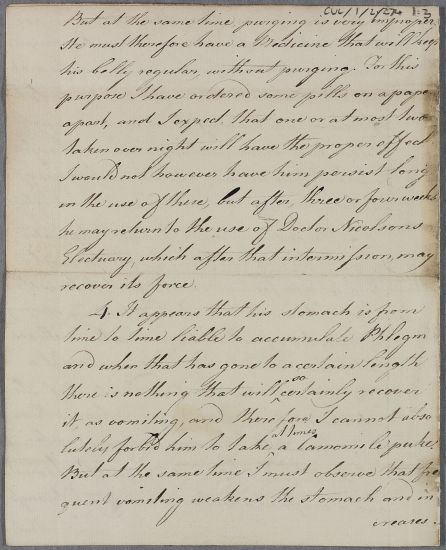 CUL/1/2/274 1:2
But at the same time purging is very improper.
He must therefore have a Medicine that will keep
his belly regular, without purging. For this
purpose I have ordered some pills on a paper
apart, and I expect that one or at most two
taken over night will have the proper effect
I would not however have him persist long
in the use of these, but after, three or four weeks
he may return to the use of Doctor Nicolsons
Electuary, which after that intermission, may
recover its force.
4. It appears that his stomach is from
time to time liable to accumulate Phlegm
and when that has gone to a certain length
there is nothing that will so certainly recover
it, as vomiting, and therefore I cannot abso
lutely forbid him to take at times a Camomile puke.
But at the same time I must observe that fre
quent vomiting weakens the stomach and in
creases